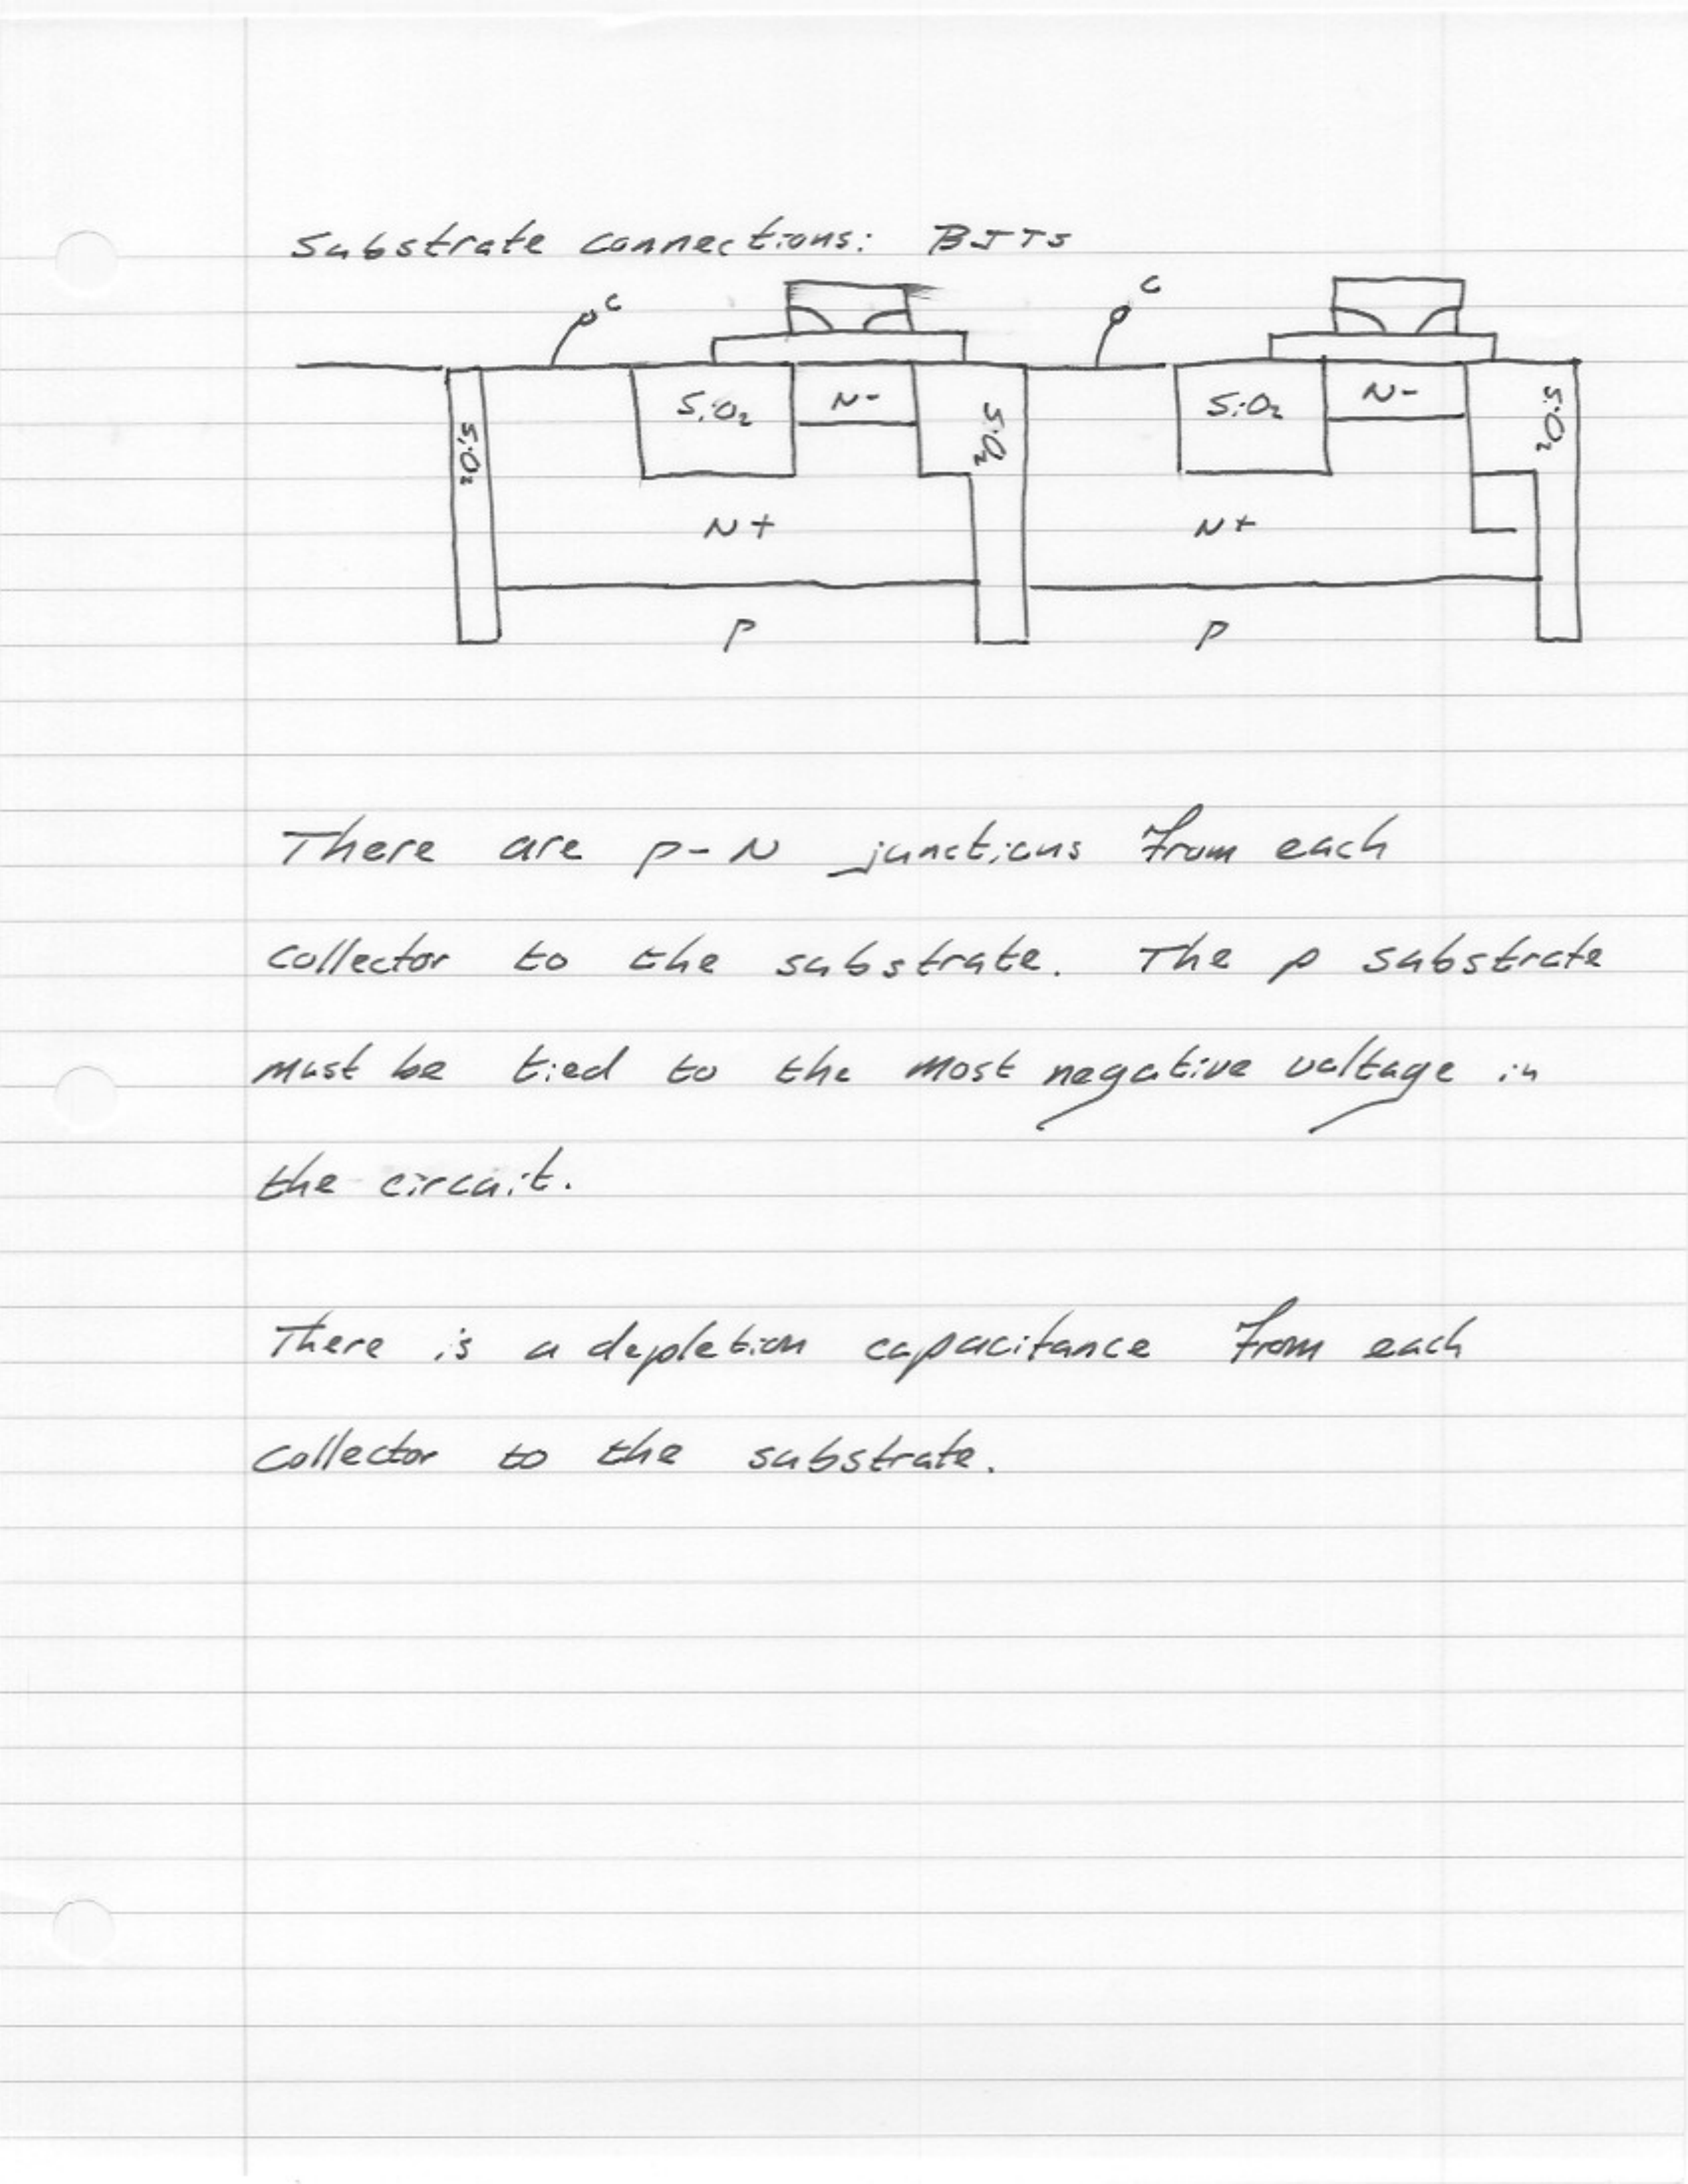 Substrate connections: BJTs
C C
SiO2 N- SiO2 N-
SiO2 SiO2 SiO2
N+ N+
P P
There are p-N junctions from each
collector to the substrate. The p substrate
must be tied to the most negative voltage in
the circuit.
There is a depletion capacitance from each
collector to the substrate.